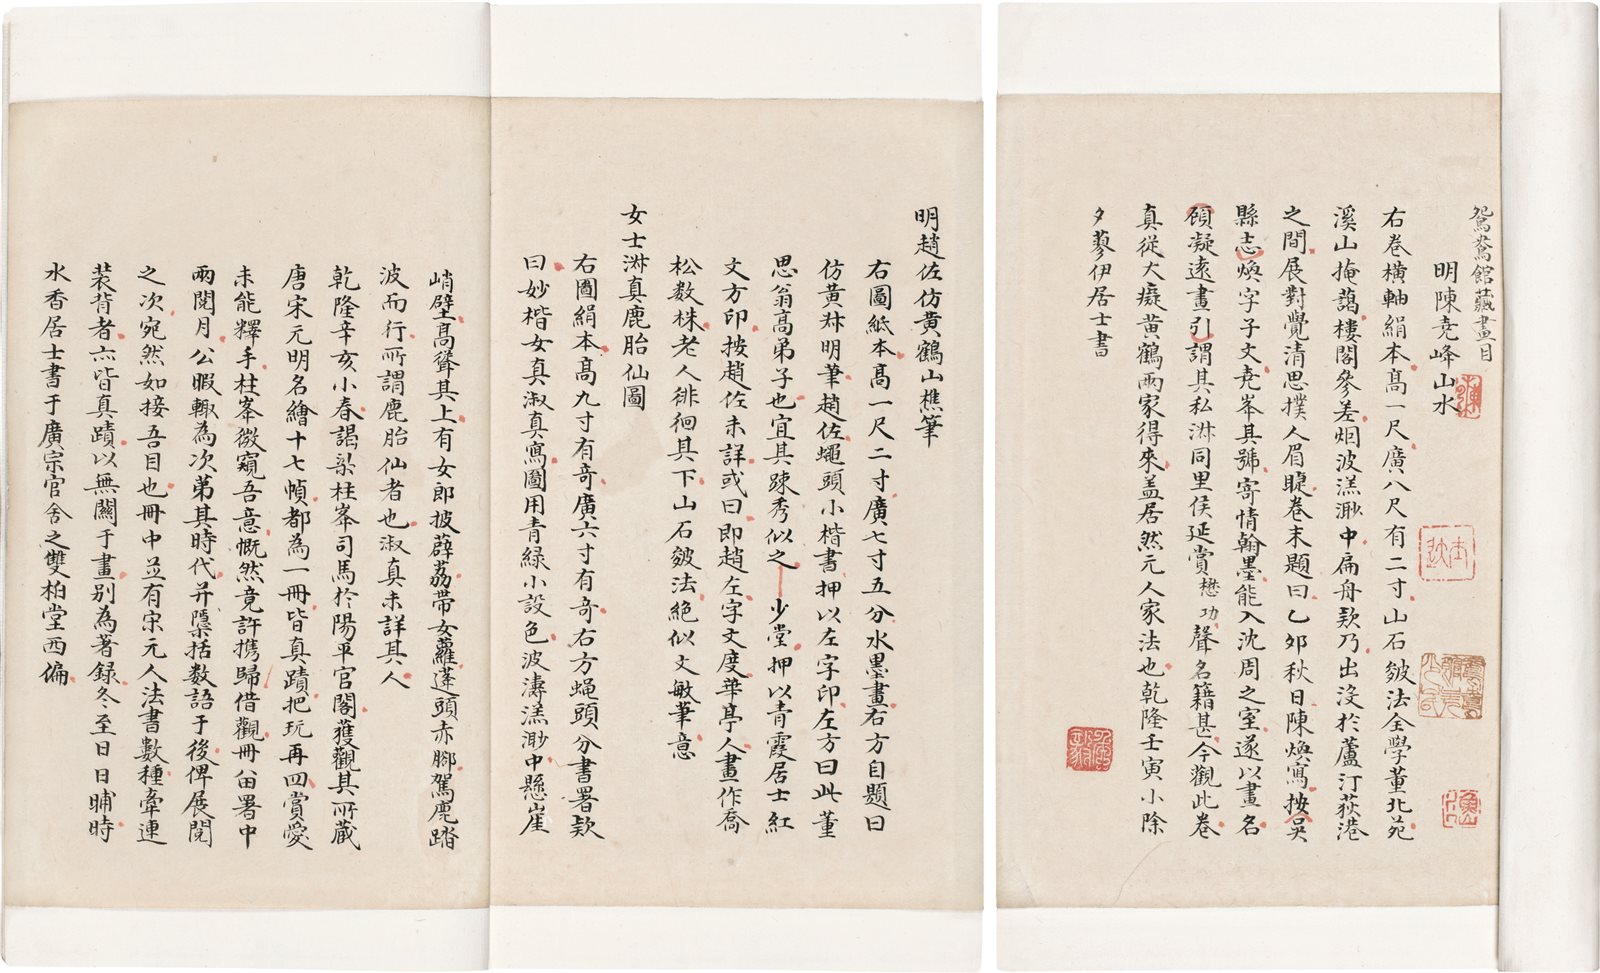 鴛鴦館藏畫目
明陳堯峰山水
右卷橫軸絹本高一尺廣八尺有二寸山石皴法全學董北苑
溪山掩藹樓閣參差烟波漾渺中扁舟欵乃出沒於蘆汀荻港
之間展對覺清思撲人眉睫卷末題曰乙卯秋日陳煥寫按吳
縣志煥字子文堯峯其號寄情翰墨能入沈周之室遂以畫名
頋凝遠畫引謂其私淑同里侯延賞懋功聲名籍甚今觀此卷
真從大癡黃鶴兩家得來盖居然元人家法也乾隆壬寅小除
夕蓼伊居士書
明趙佐仿黃鶴山樵筆
右圖紙本高一尺二寸廣七寸五分水墨畫右方自題曰
仿黃叔明筆趙佐蠅頭小楷書押以左字印左方曰此董
思翁高弟子也宜其踈秀似之少堂押以青霞居士紅
文方印按趙佐未詳或曰即趙左字文度華亭人畫作喬
松数株老人徘徊其下山石皴法絕似文敏筆意
女士淑真鹿胎仙圖
右圖絹本高九寸有奇廣六寸有奇右方蠅頭分書署欵
曰妙楷女真淑真寫圖用青緑小設色波濤漾渺中懸崖
峭壁高聳其上有女郎披薜荔帶女蘿蓬頭赤腳駕鹿踏
波而行所謂鹿胎仙者也淑真未詳其人
乾隆辛亥小春謁梁柱峯司馬於陽平官閣獲觀其所蔵
唐宋元明名繪十七幀都為一冊皆真蹟把玩再四賞愛
未能釋手柱峯微窺吾意慨然竟許携歸借觀冊畱署中
兩閱月公暇輙為次第其時代并隱括数語于後俾展閱
之次宛然如接吾目也冊中並有宋元人法書數種牽連
裝背者亦皆真蹟以無關于畫别為著録冬至日日晡時
水香居士書于廣宗官舍之雙柏堂西偏